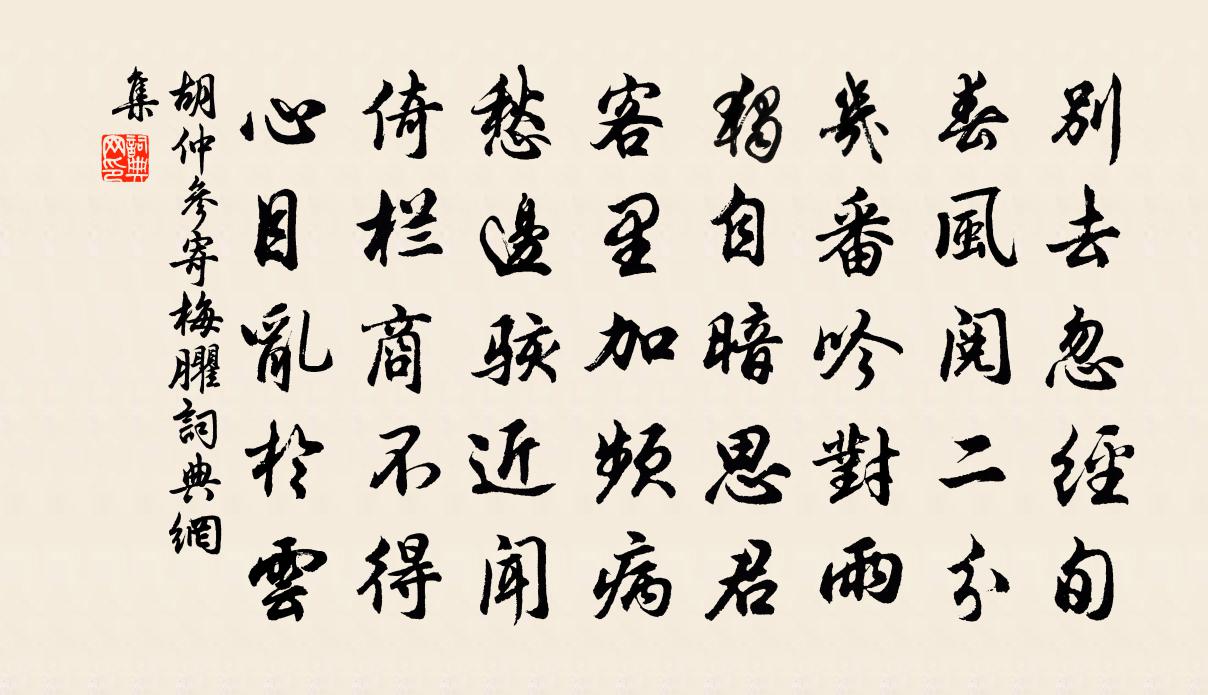 別去忽經旬
春風閱二分
幾番吟對雨
獨自暗思君
客里加頻病
愁邊駭近聞
倚栏商不得
心目亂於雲
胡仲參寄梅臞詞典網
集
詞典
网印